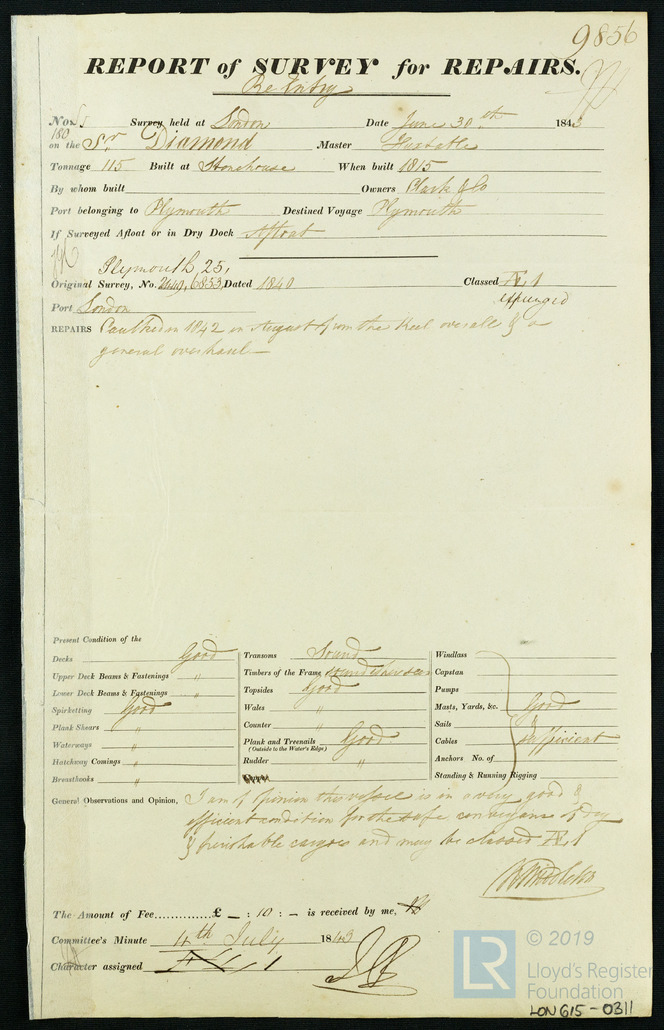 9856
REPORT of SURVEY for REPAIRS.
Re Entry
No. Survey held at London Date June 30th 1843
180
on the Sr Diamond Master
Tonnage 115 Built at Stonehouse When built 1815
By whom built Owners Clark & Co
Port belonging to Plymouth Destined Voyage Plymouth
If Surveyed Afloat or in Dry Dock Afloat
Plymouth, 25,
Original Survey, No. 6853 Dated 1840 Classed Æ 1
expunged
Port London
REPAIRS Caulked in 1842 in August from the Keel over all & a
general overhaul
Present Condition of the
Decks Good Transoms Sound Windlass
Upper Deck Beams & Fastenings " Timbers of the Frame sound where seen Capstan
Lower Deck Beams & Fastenings " Topsides Good Pumps
Spirketting Good Wales " Masts, Yards, &c. Good
Plank Shears " Counter " Sails &
Waterways " Plank and Treenails Good Cables sufficient
(Outside to the Water's Edge)
Hatchway Comings " Rudder " Anchors No. of
Breasthooks " Standing & Running Rigging
General Observations and Opinion, I am of Opinion this vessel is in a very good &
efficient condition for the safe conveyance of dry
& perishable cargoes and may be classed Æ 1
The Amount of Fee............... £ – : 10 : – is received by me,
Committee's Minute 4th July 1843
Character assigned Æ 1
LR © 2019
Lloyd's Register
Foundation
LON 615 - 0311